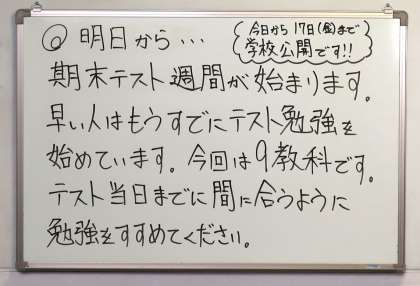 ◎ 明日から…
今日から17日(金)まで
学校公開です!!
期末テスト週間が始まります。
早い人はもうすでにテスト勉強を
始めています。今回は9教科です。
テスト当日までに間に合うように
勉強をすすめてください。